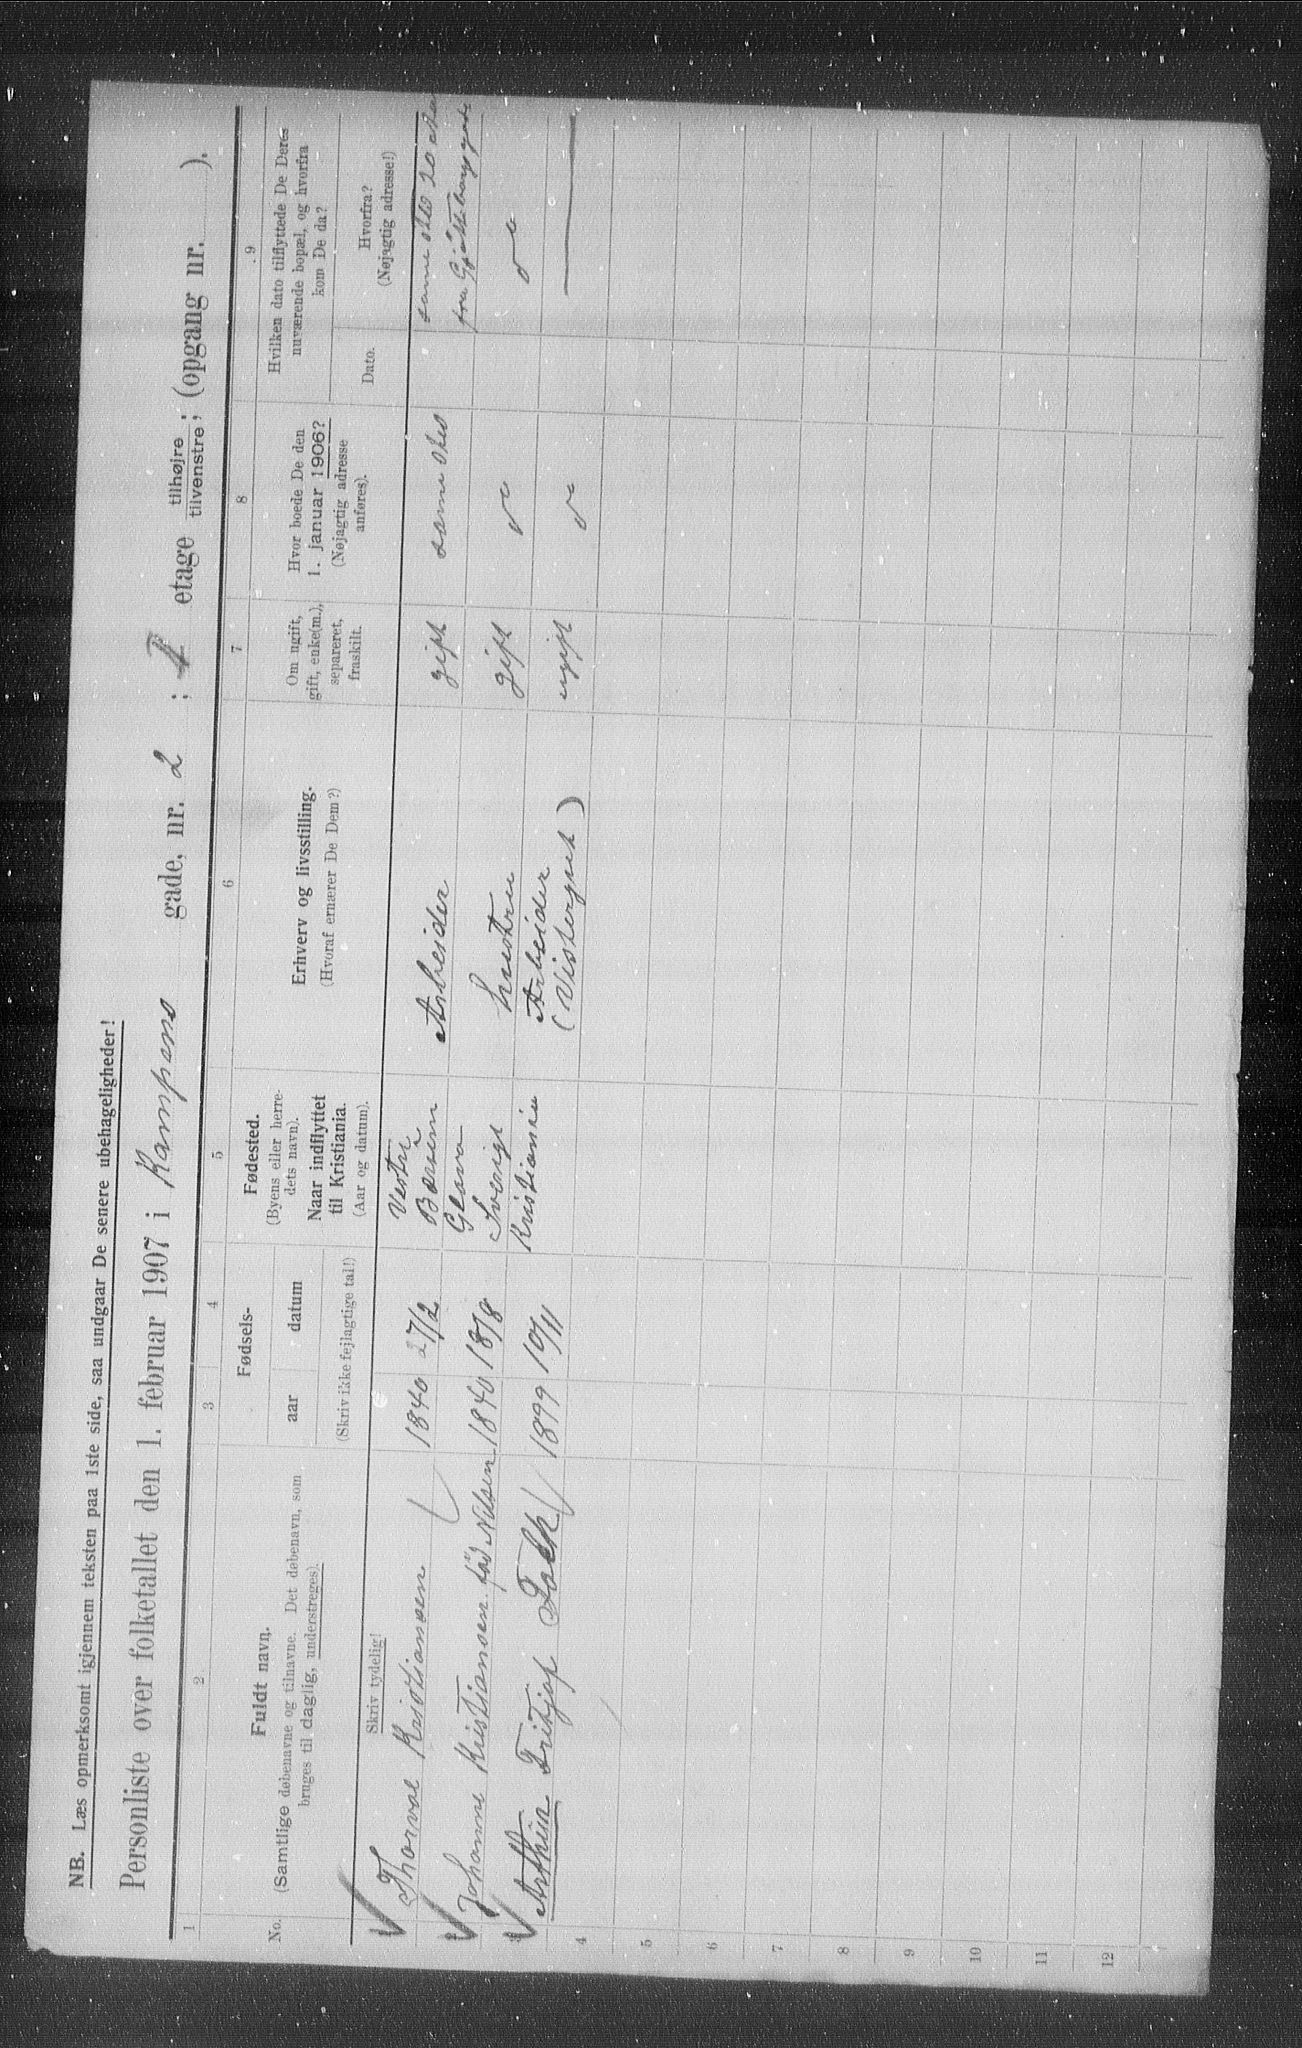 NB. Læs opmerksomt igjennem teksten paa 1ste side, saa undgaar De senere ubehageligheder!
Personliste over folketallet den 1. februar 1907 i Kampens gade, nr. 2 ; 1 etage tilhøjre ; (opgang nr. ).
tilvenstre
1 2 3 4 5 6 7 8 9
No.
Fuldt navn.
(Samtlige døbenavne og tilnavne. Det døbenavn, som
bruges til daglig, understreges).
Fødsels-
aar datum
Fødested.
(Byens eller herre-
dets navn).
Naar indflyttet
til Kristiania.
(Aar og datum).
Erhverv og livsstilling.
(Hvoraf ernærer De Dem?)
Om ugift,
gift, enke(m.),
separeret,
fraskilt.
Hvor boede De den
1. januar 1906?
(Nøjagtig adresse
anføres).
Hvilken dato tilflyttede De Deres
nuværende bopæl, og hvorfra
kom De da?
Skriv tydelig!
(Skriv ikke fejlagtige tal!)
Dato.
Hvorfra?
(Nøjagtig adresse!)
Thorval Kristiansen 1840 27/2 Vestre Bærum Arbeider gift samme sted samme sted 20
fra
Johanne Kristiansen fød Nilsen 1840 18/8 Glava Sverige hustru gift
Arthur Fritjof Falk 1899 10/11 Kristiania Arbeider ugift
4
5
6
7
8
9
10
11
12